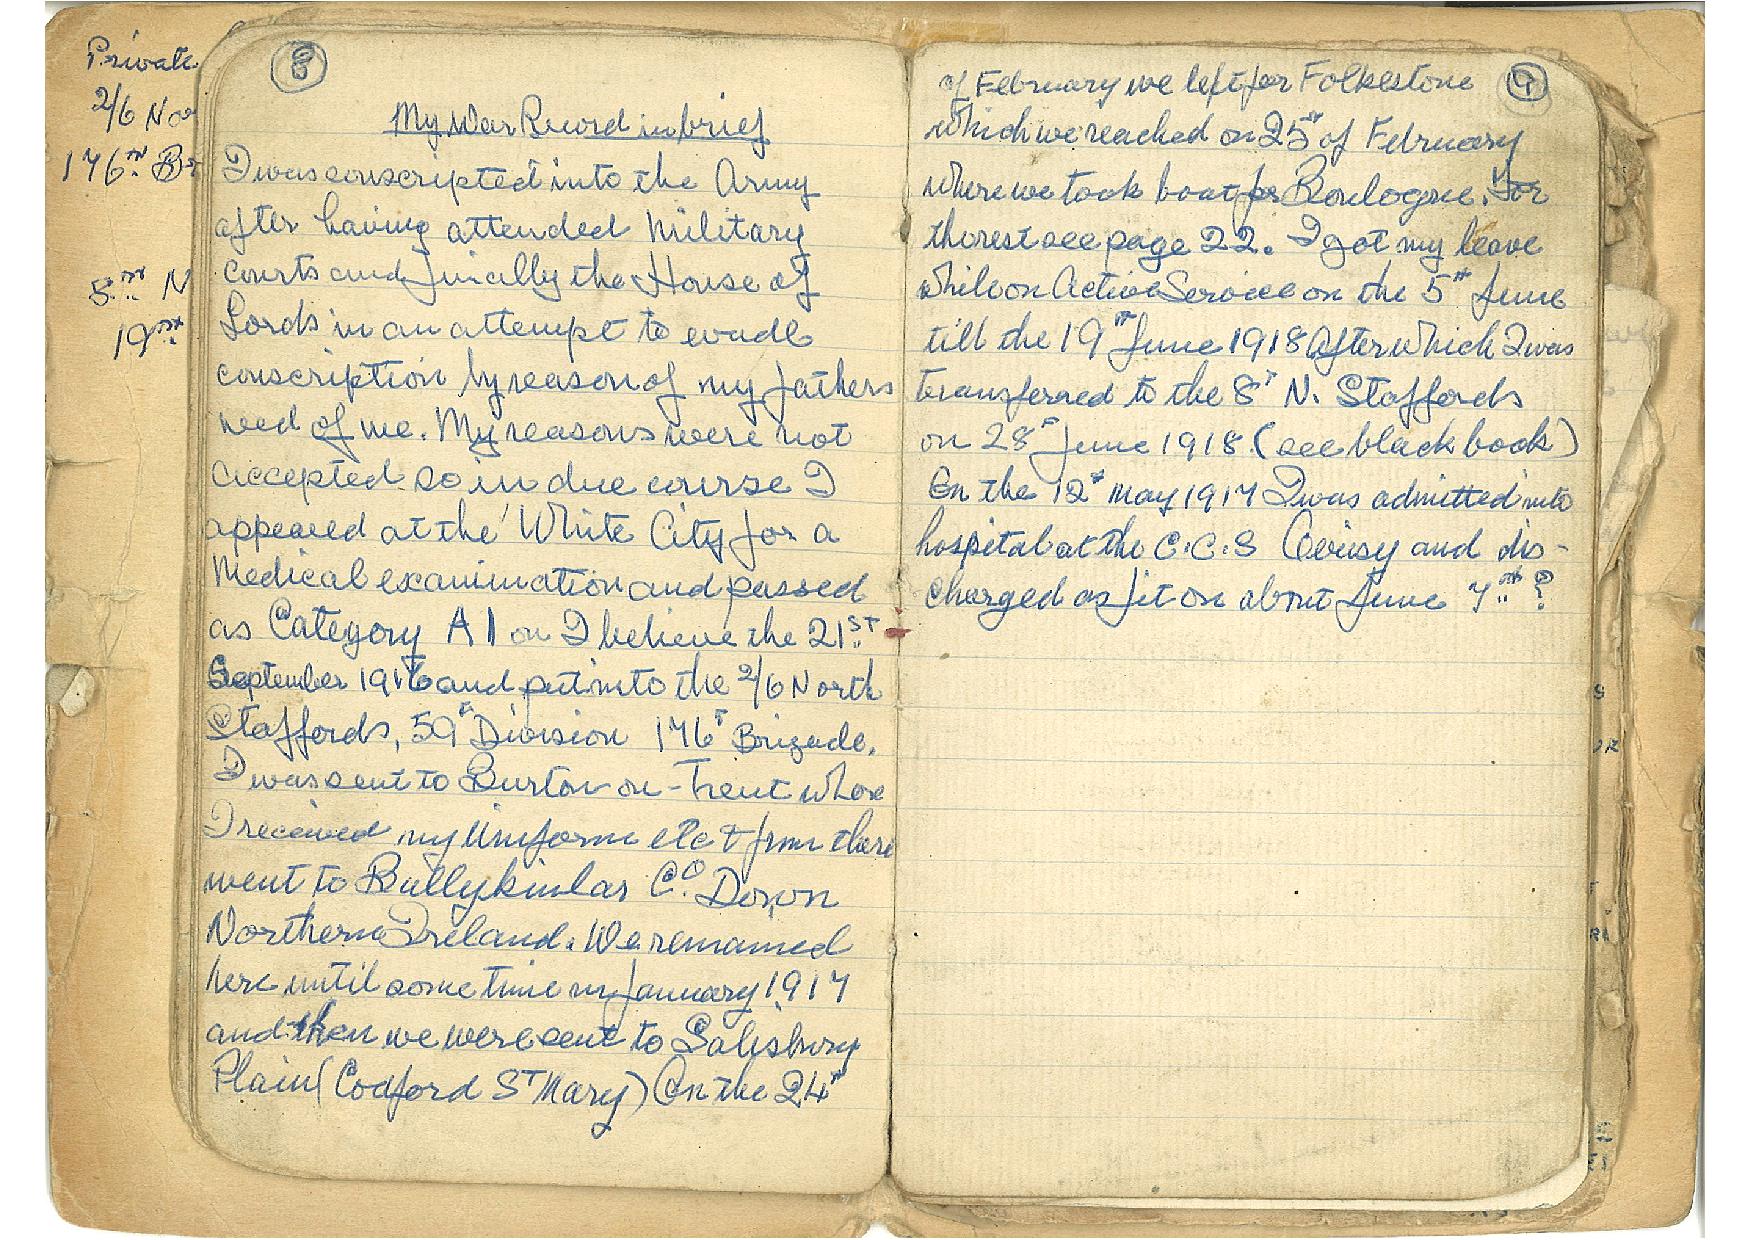 Private
2/6 Nor
176TH Br
5TH N
19TH
8
My War Record in brief
I was conscripted into the Army
after having attended Military
Courts and finally the House of
Lords in an attempt to evade
conscription by reason of my fathers
need of me. My reasons were not
accepted so in due course I
appeared at the White City for a
Medical examination and passed
as Category A1 on I believe the 21ST
September 1916 and put into the 2/6 North
Staffords, 59th Division 176T Brigade.
I was sent to Burton on-Trent where
I received my Uniform etc & from there
went to Ballykinlar Co. Down
Northern Ireland. We remained
here until some time in January 1917
and then we were sent to Salisbury
Plain (Codford ST Mary) On the 24th
9
of February we left for Folkestone
which we reached on 25th of February
where we took boat for Boulogne. For
the rest see page 22. I got my leave
while on Active Service on the 5th June
till the 19th June 1918 after which I was
transferred to the 8T N. Staffords
on 28th June 1918. (see black book)
On the 12th May 1917 I was admitted into
hospital at the C.C.S Cerisy and dis-
charged as fit on about June 7th ?